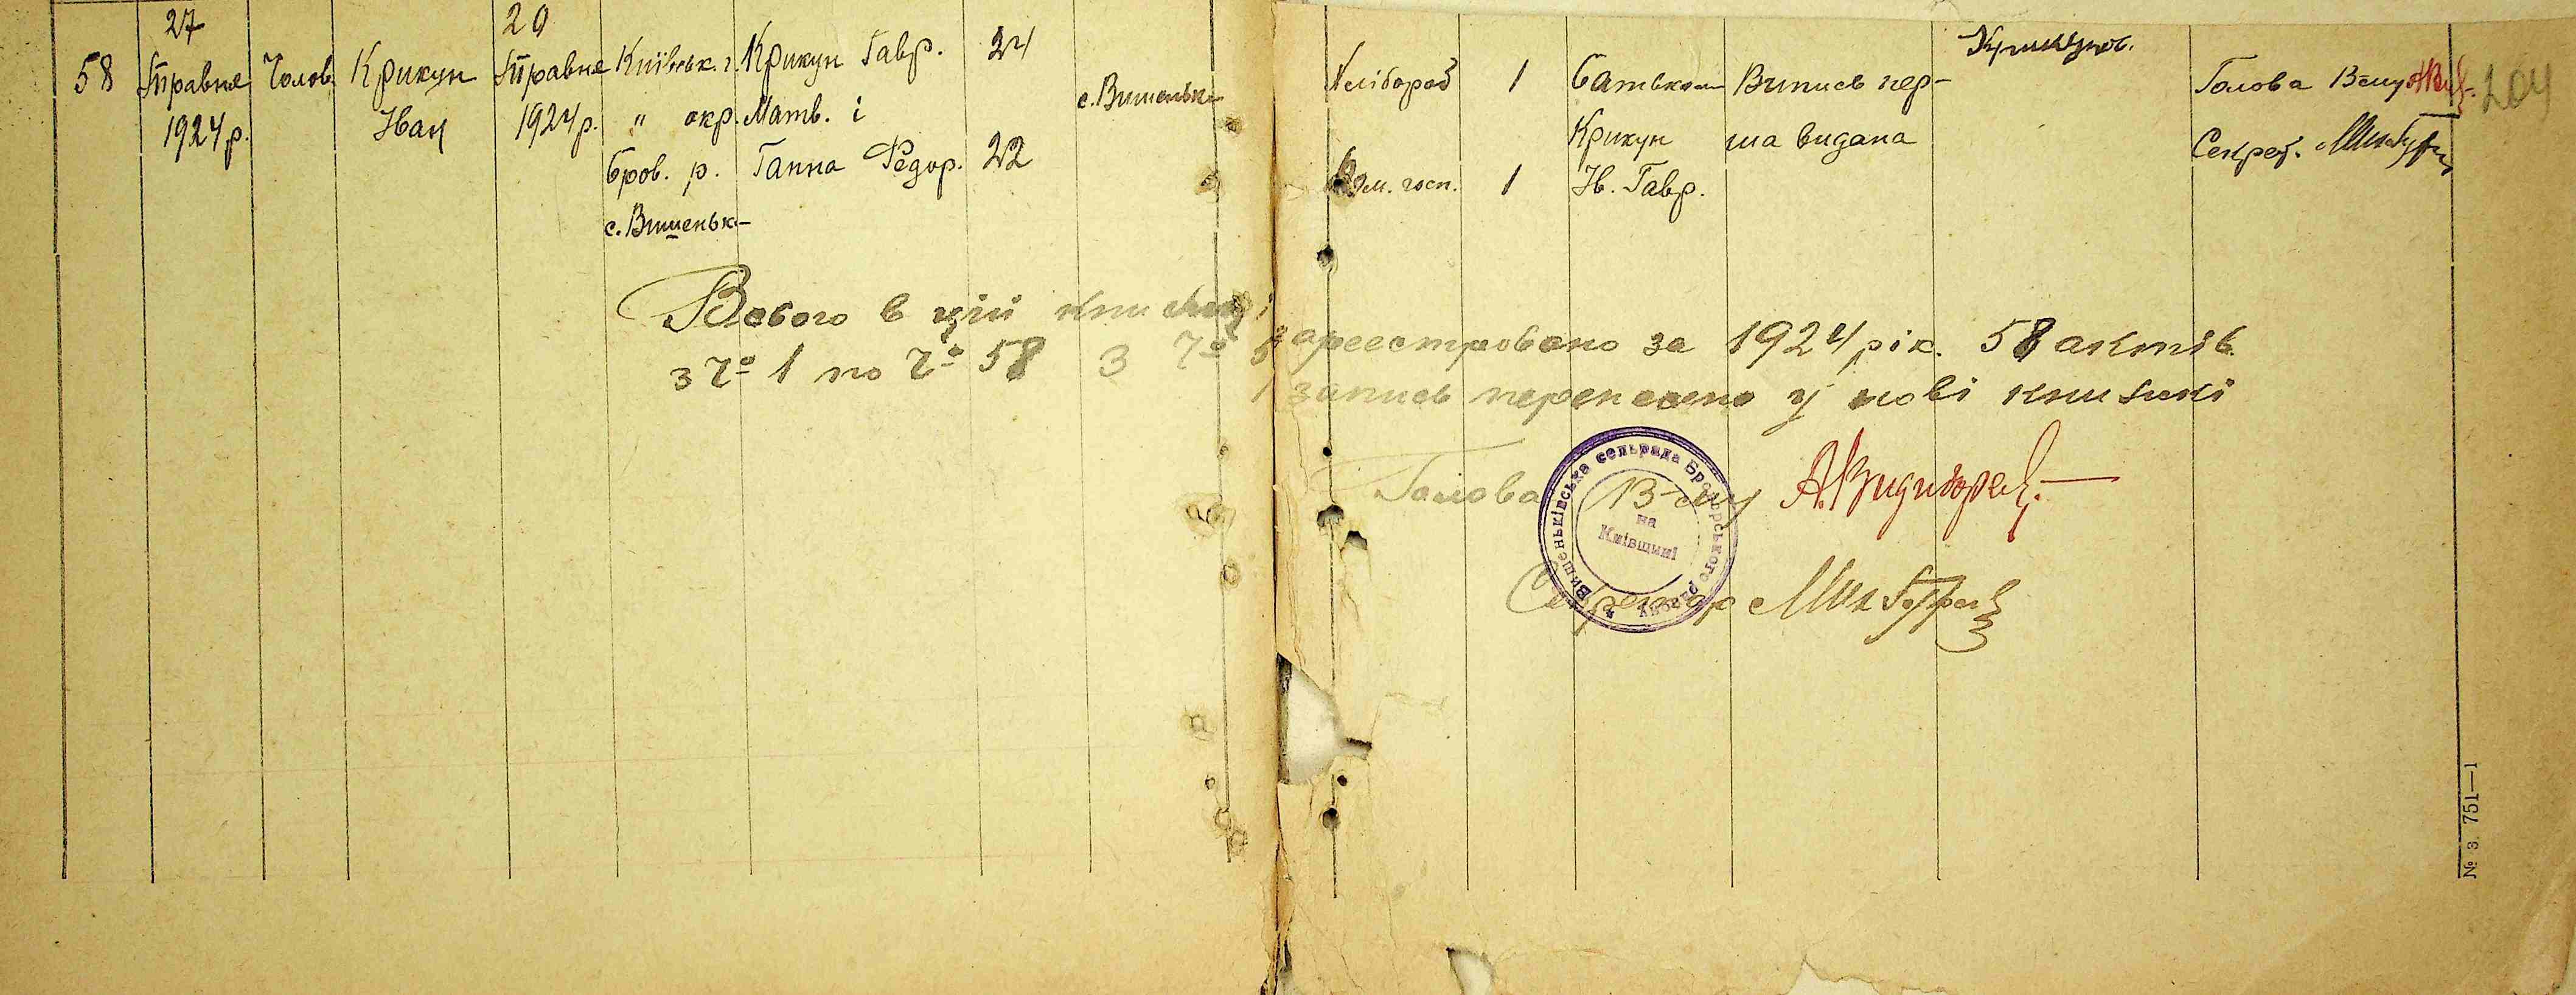 58
27
Травня
1924 р.
Чолов.
Крикун
Іван
20
Травня
1924 р.
Київськ. г.
" окр.
Бров. р.
с. Вишеньк-
Крикун Гавр.
Матв. і
Ганна Федор.
24
22
с. Вишеньк-
Хлібороб
Дом. госп.
1
1
Батьком
Крикун
Ів. Гавр.
Випись пер-
ша видана
Голова
Секрет.
204
Всього в цій книжці зареєстровано за 1924 рік. 58 актів.
з ч° 1 по ч° 58 З ч° запись перенесено у нові книжкі
Голова
Секретар
Вишеньківська сельрада Броварського району
на
Київщині
№ З. 751—1